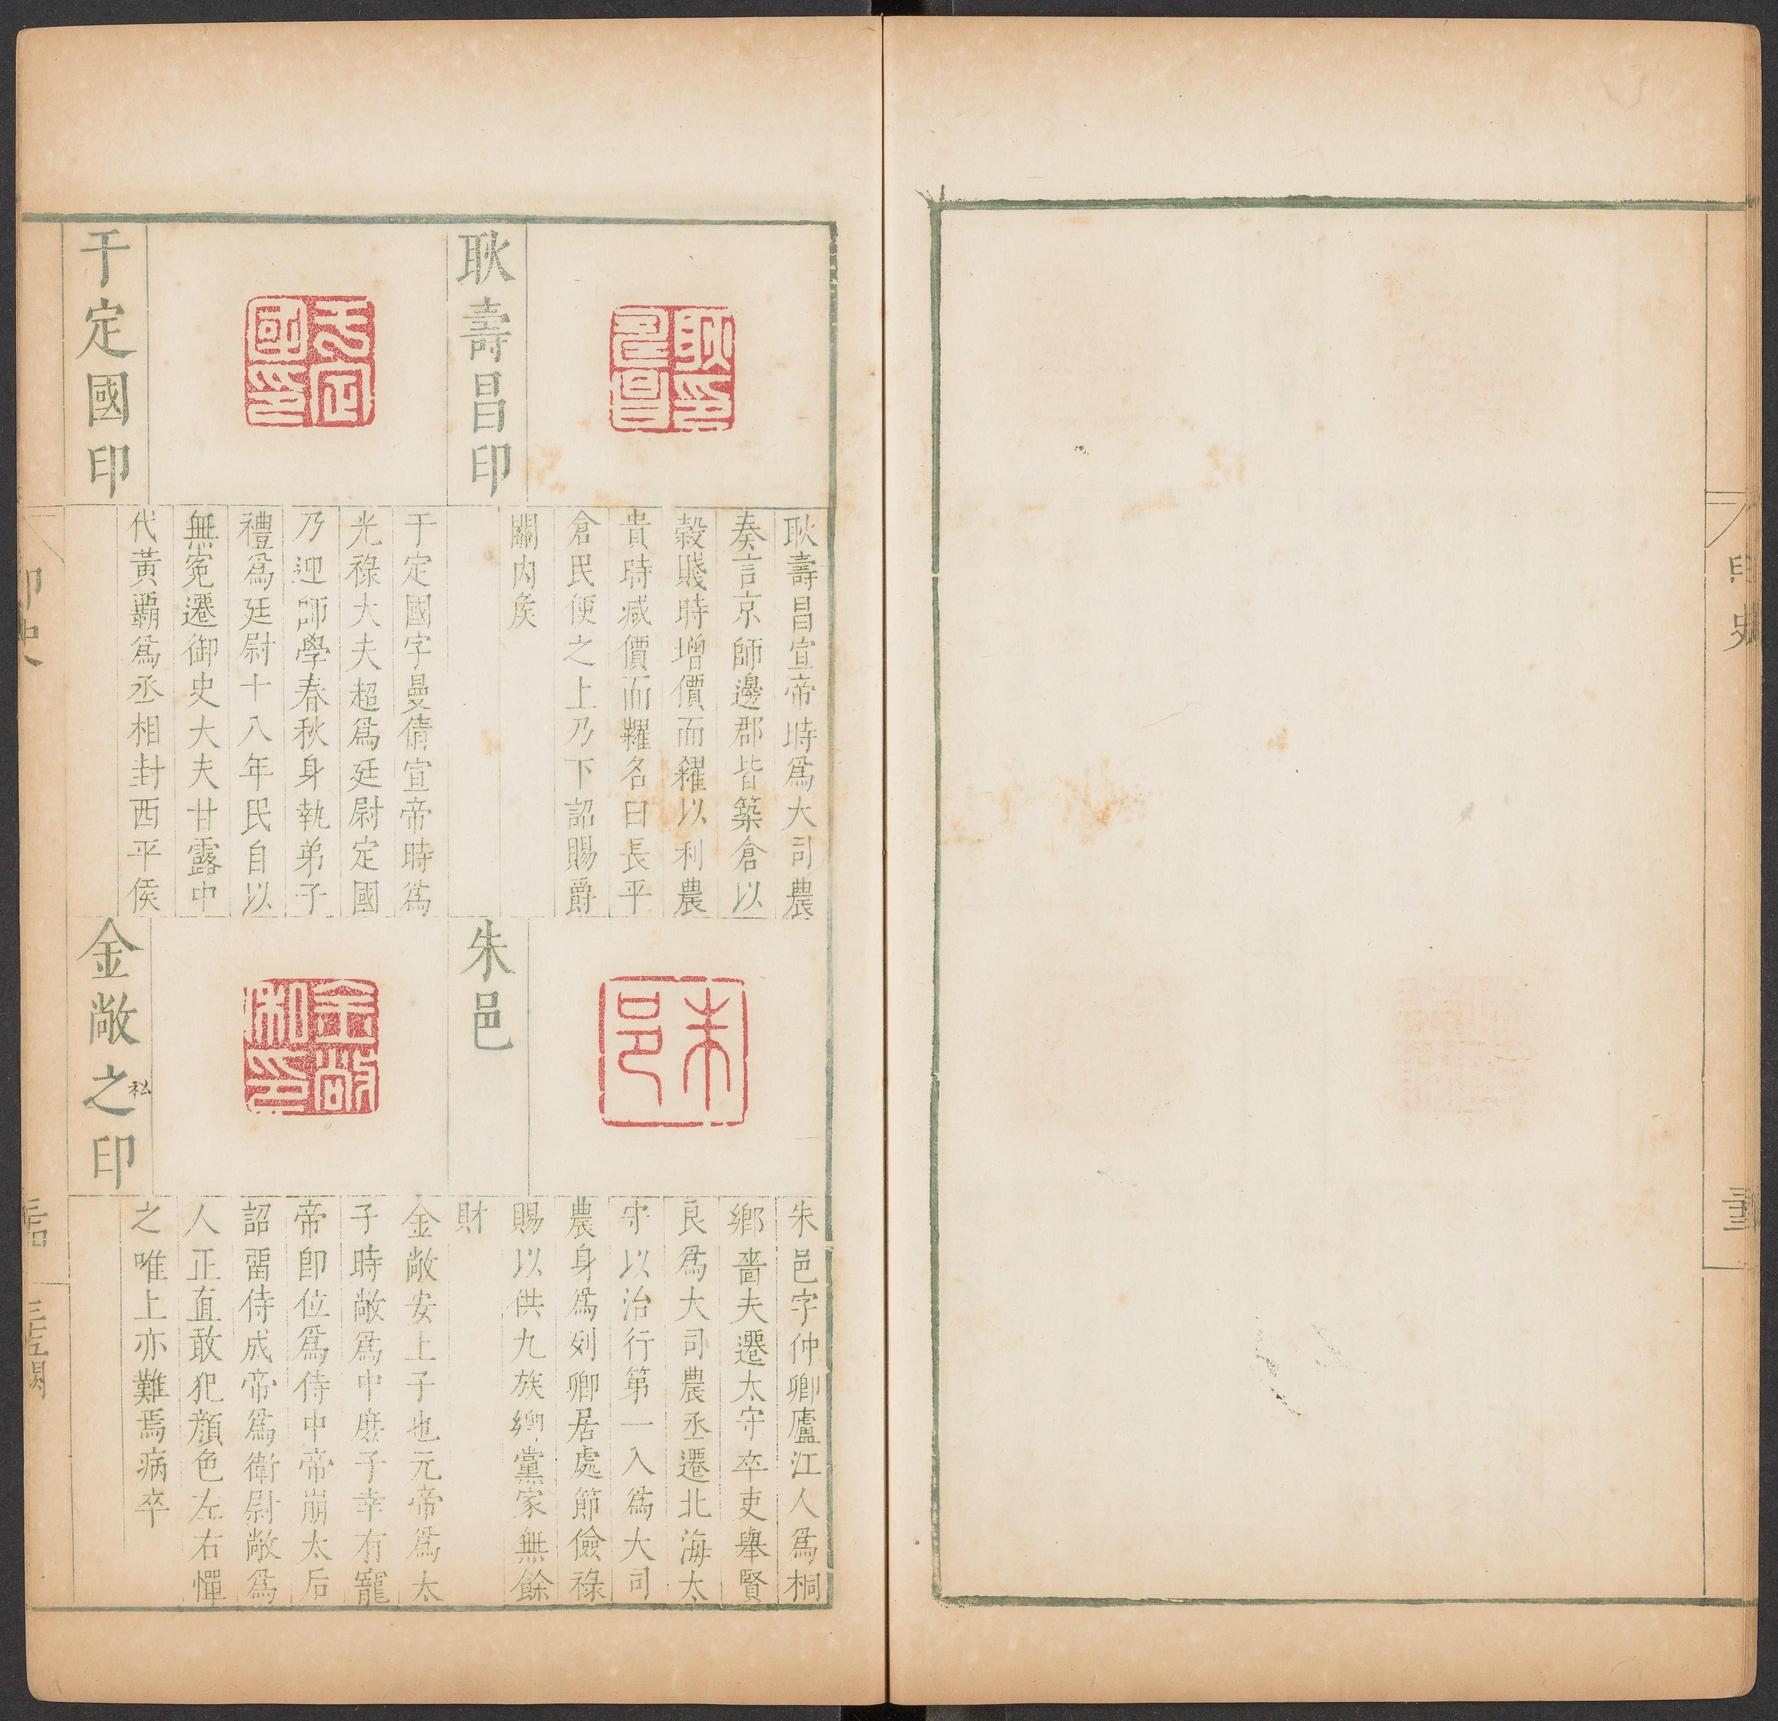 耿壽昌印
耿壽昌宣帝時爲大司農
奏言京師邊郡皆築倉以
穀賤時增價而糴以利農
貴時減價而糶名曰長平
倉民便之上乃下詔賜爵
關內矦
于定國印
于定國字曼倩宣帝時爲
光祿大夫超爲廷尉定國
乃迎師學春秋身執弟子
禮爲廷尉十八年民自以
無冤遷御史大夫甘露中
代黃霸爲丞相封西平侯
朱邑
朱邑
朱邑字仲卿廬江人爲桐
鄉嗇夫遷太守卒吏舉賢
良爲大司農丞遷北海太
守以治行第一入爲大司
農身爲列卿居處節儉祿
賜以供九族鄉黨家無餘
財
金敞之印
私
金敞安上子也元帝爲太
子時敞爲中庶子幸有寵
帝卽位爲侍中帝崩太后
詔留侍成帝爲衛尉敞爲
人正直敢犯顏色左右憚
之唯上亦難焉病卒
印史